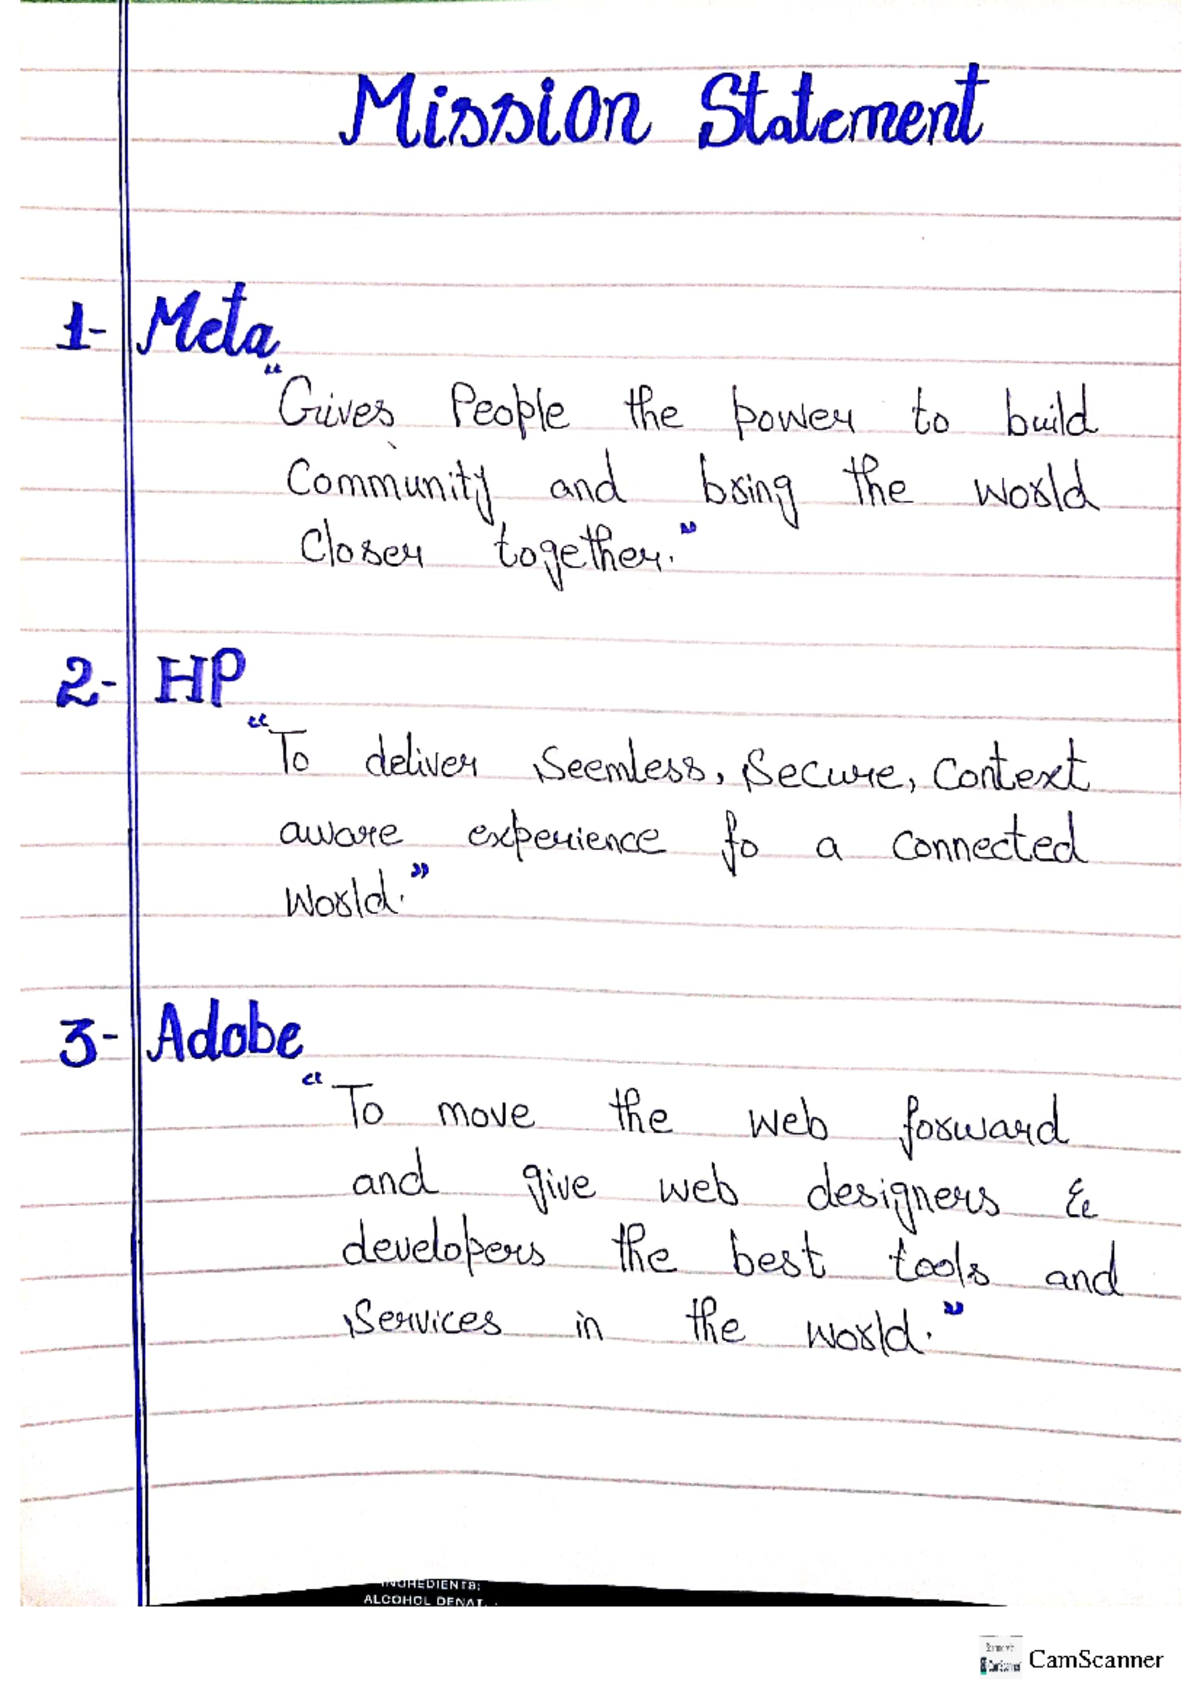 Mission Statement
1- Meta
“Gives People the power to build
Community and bring the world
Closer together.”
2- HP
“To deliver Seemless, Secure, Context
aware experience fo a connected
World.”
3- Adobe
“To move the web forward
and give web designers &
developers the best tools and
Services in the world.”
INGREDIENTS:
ALCOHOL DENAT.
CamScanner